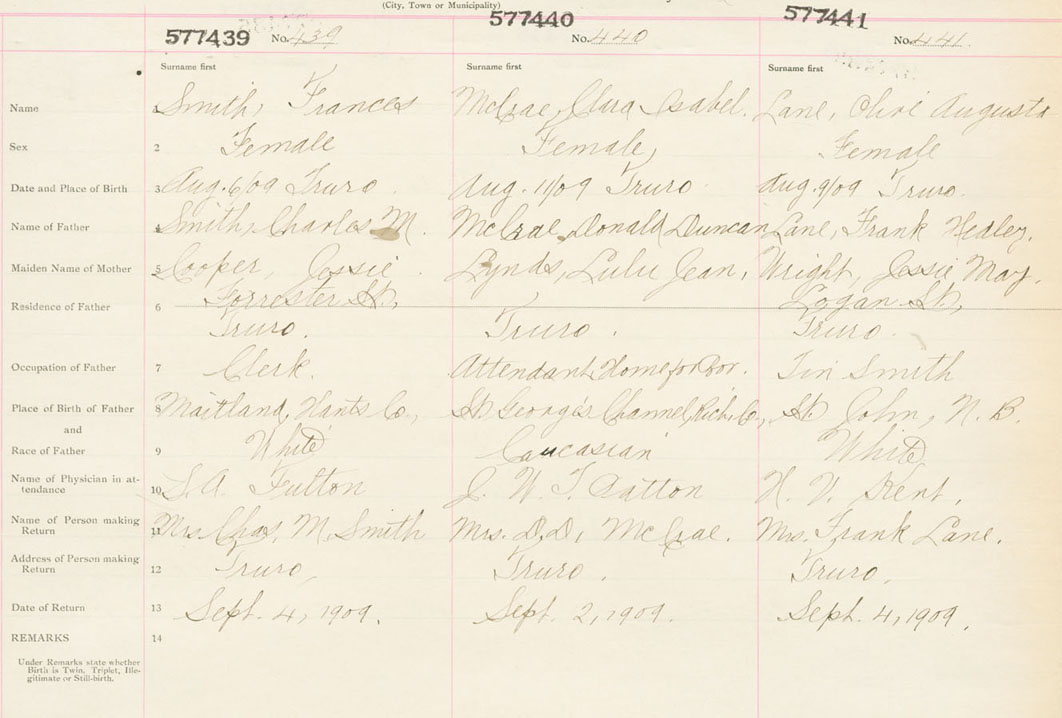 (City, Town or Municipality)
577439 No. 439 577440 No. 440 577441 No. 441
Surname first Surname first Surname first
Name 1 Smith, Frances McCrae, Clara Isabel. Lane, Olive Augusta
Sex 2 Female Female, Female
Date and Place of Birth 3 Aug. 6/09 Truro. Aug. 11/09 Truro. Aug. 9/09 Truro.
Name of Father 4 Smith, Charles M. McCrae, Donald Duncan Lane, Frank Hedley.
Maiden Name of Mother 5 Cooper, Jessie. Lynds, Lulu Jean, Wright, Jessie May.
Forrester St, Logan St,
Residence of Father 6
Truro. Truro. Truro.
Occupation of Father 7 Clerk. Attendant, Home for Poor. Tin Smith
Place of Birth of Father 8 Maitland, Hants Co., St George's Channel, Rich. Co., St. John, N. B.
and
Race of Father 9 White Caucasian White
Name of Physician in at-
tendance 10 S. A. Fulton J. W. T. Patton H. V. Kent.
Name of Person making
Return 11 Mrs. Chas. M. Smith Mrs. D. D. McCrae. Mrs. Frank Lane.
Address of Person making
Return 12 Truro, Truro. Truro.
Date of Return 13 Sept. 4, 1909. Sept. 2, 1909. Sept. 4, 1909.
REMARKS 14
Under Remarks state whether
Birth is Twin, Triplet, Ille-
gitimate or Still-birth.